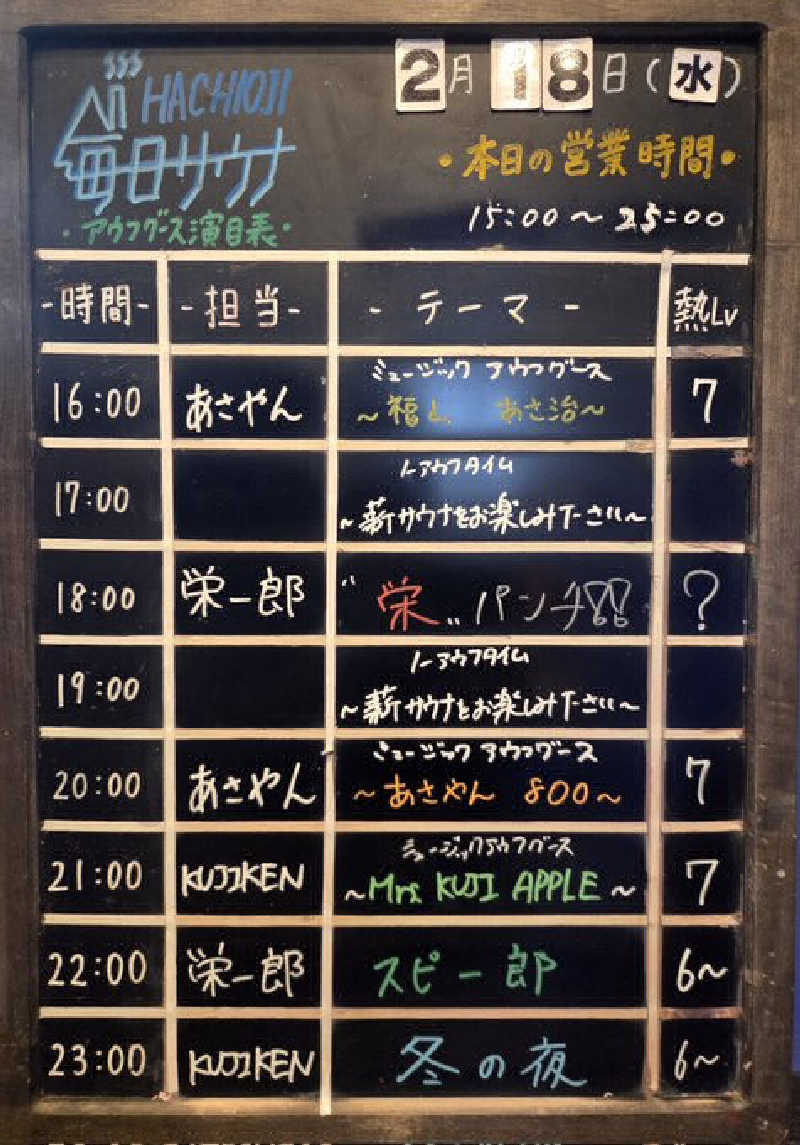 HACHIOJI
毎日サウナ
アウフグース演目表
2月18日(水)
・本日の営業時間・
15:00〜25:00
-時間- -担当- -テーマ- 熱Lv
16:00 あさやん ミュージック アウフグース 7
〜福山 あさ治〜
17:00 ノーアウフタイム
〜薪サウナをお楽しみ下さい〜
18:00 栄一郎 "栄"パンチ!! ?
19:00 ノーアウフタイム
〜薪サウナをお楽しみ下さい〜
20:00 あさやん ミュージック アウフグース 7
〜あさやん 800〜
21:00 KUJIKEN ミュージックアウフグース 7
〜Mrs. KUJI APPLE〜
22:00 栄一郎 スピー郎 6〜
23:00 KUJIKEN 冬の夜 6〜